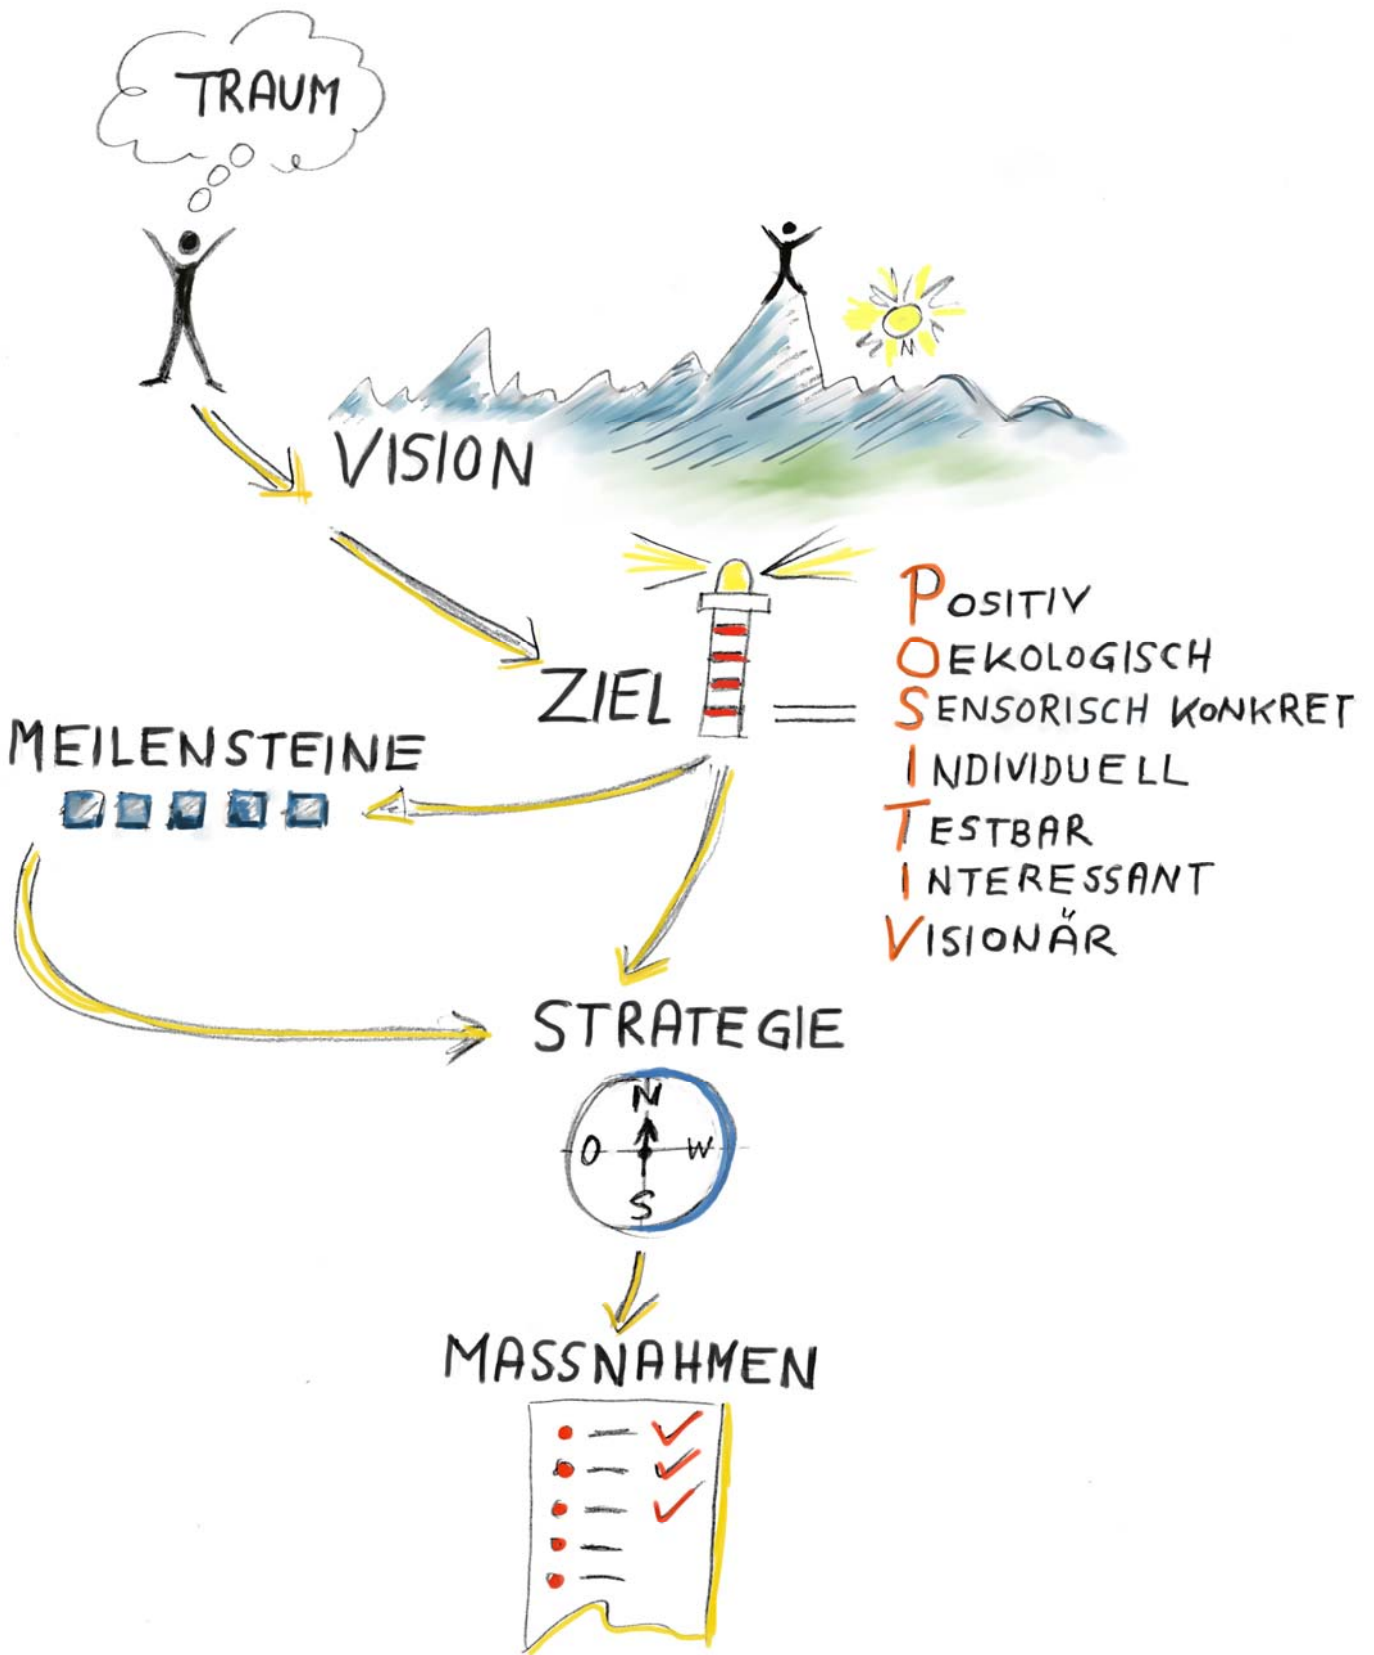 TRAUM
VISION
ZIEL
POSITIV
OEKOLOGISCH
SENSORISCH KONKRET
INDIVIDUELL
TESTBAR
INTERESSANT
VISIONÄR
MEILENSTEINE
STRATEGIE
N
O W
S
MASSNAHMEN